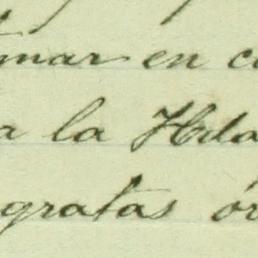 mar en c
a la Hda
gratas ór